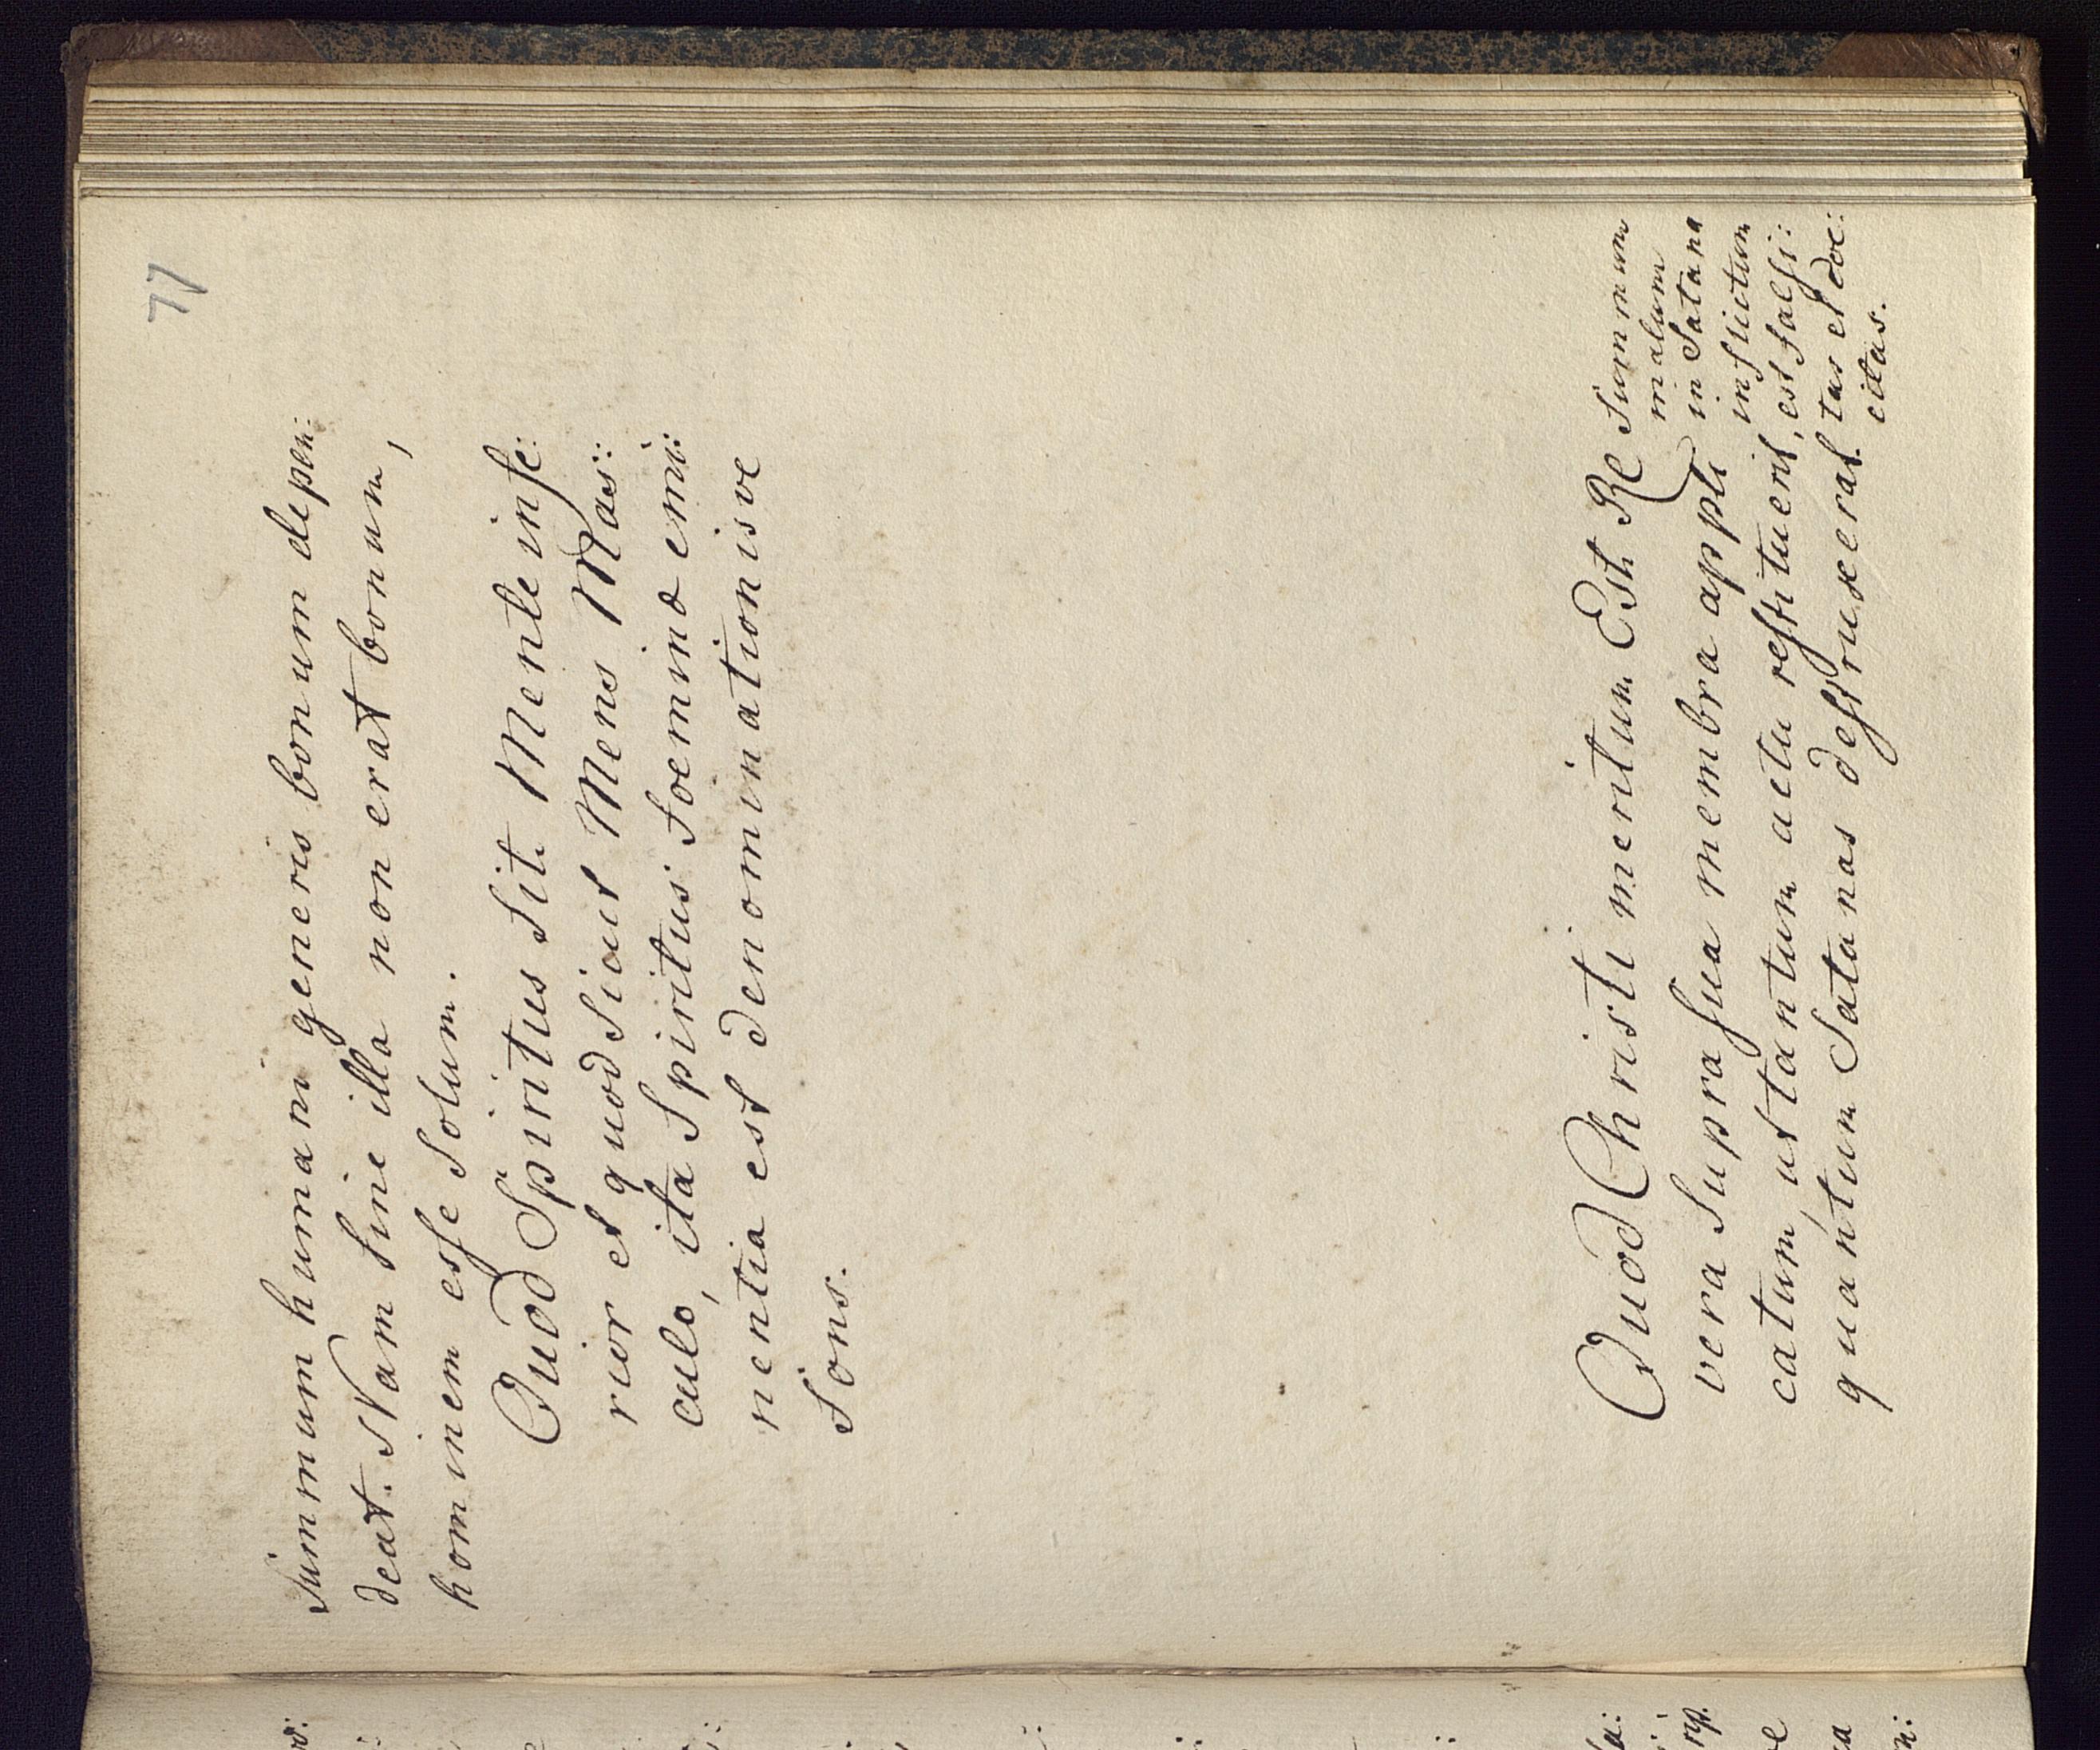 77
Summum humani generis bonum depen:
deat. Nam sine illa non erat bonum,
hominem esse solum.
Quod Spiritus sit Mente infe:
rior et quod sicut Mens Mas:
culo, ita Spiritus foeminae emi:
nentia est denominationisve
fons.
Quod Christi meritum Est Re
vera supra sua membra appli
catum, ut tantum actu restituerit,
quantum Satanas destruxerat.
Summum
malum
in Satana
inflictum
est falsi:
tas et
citas.